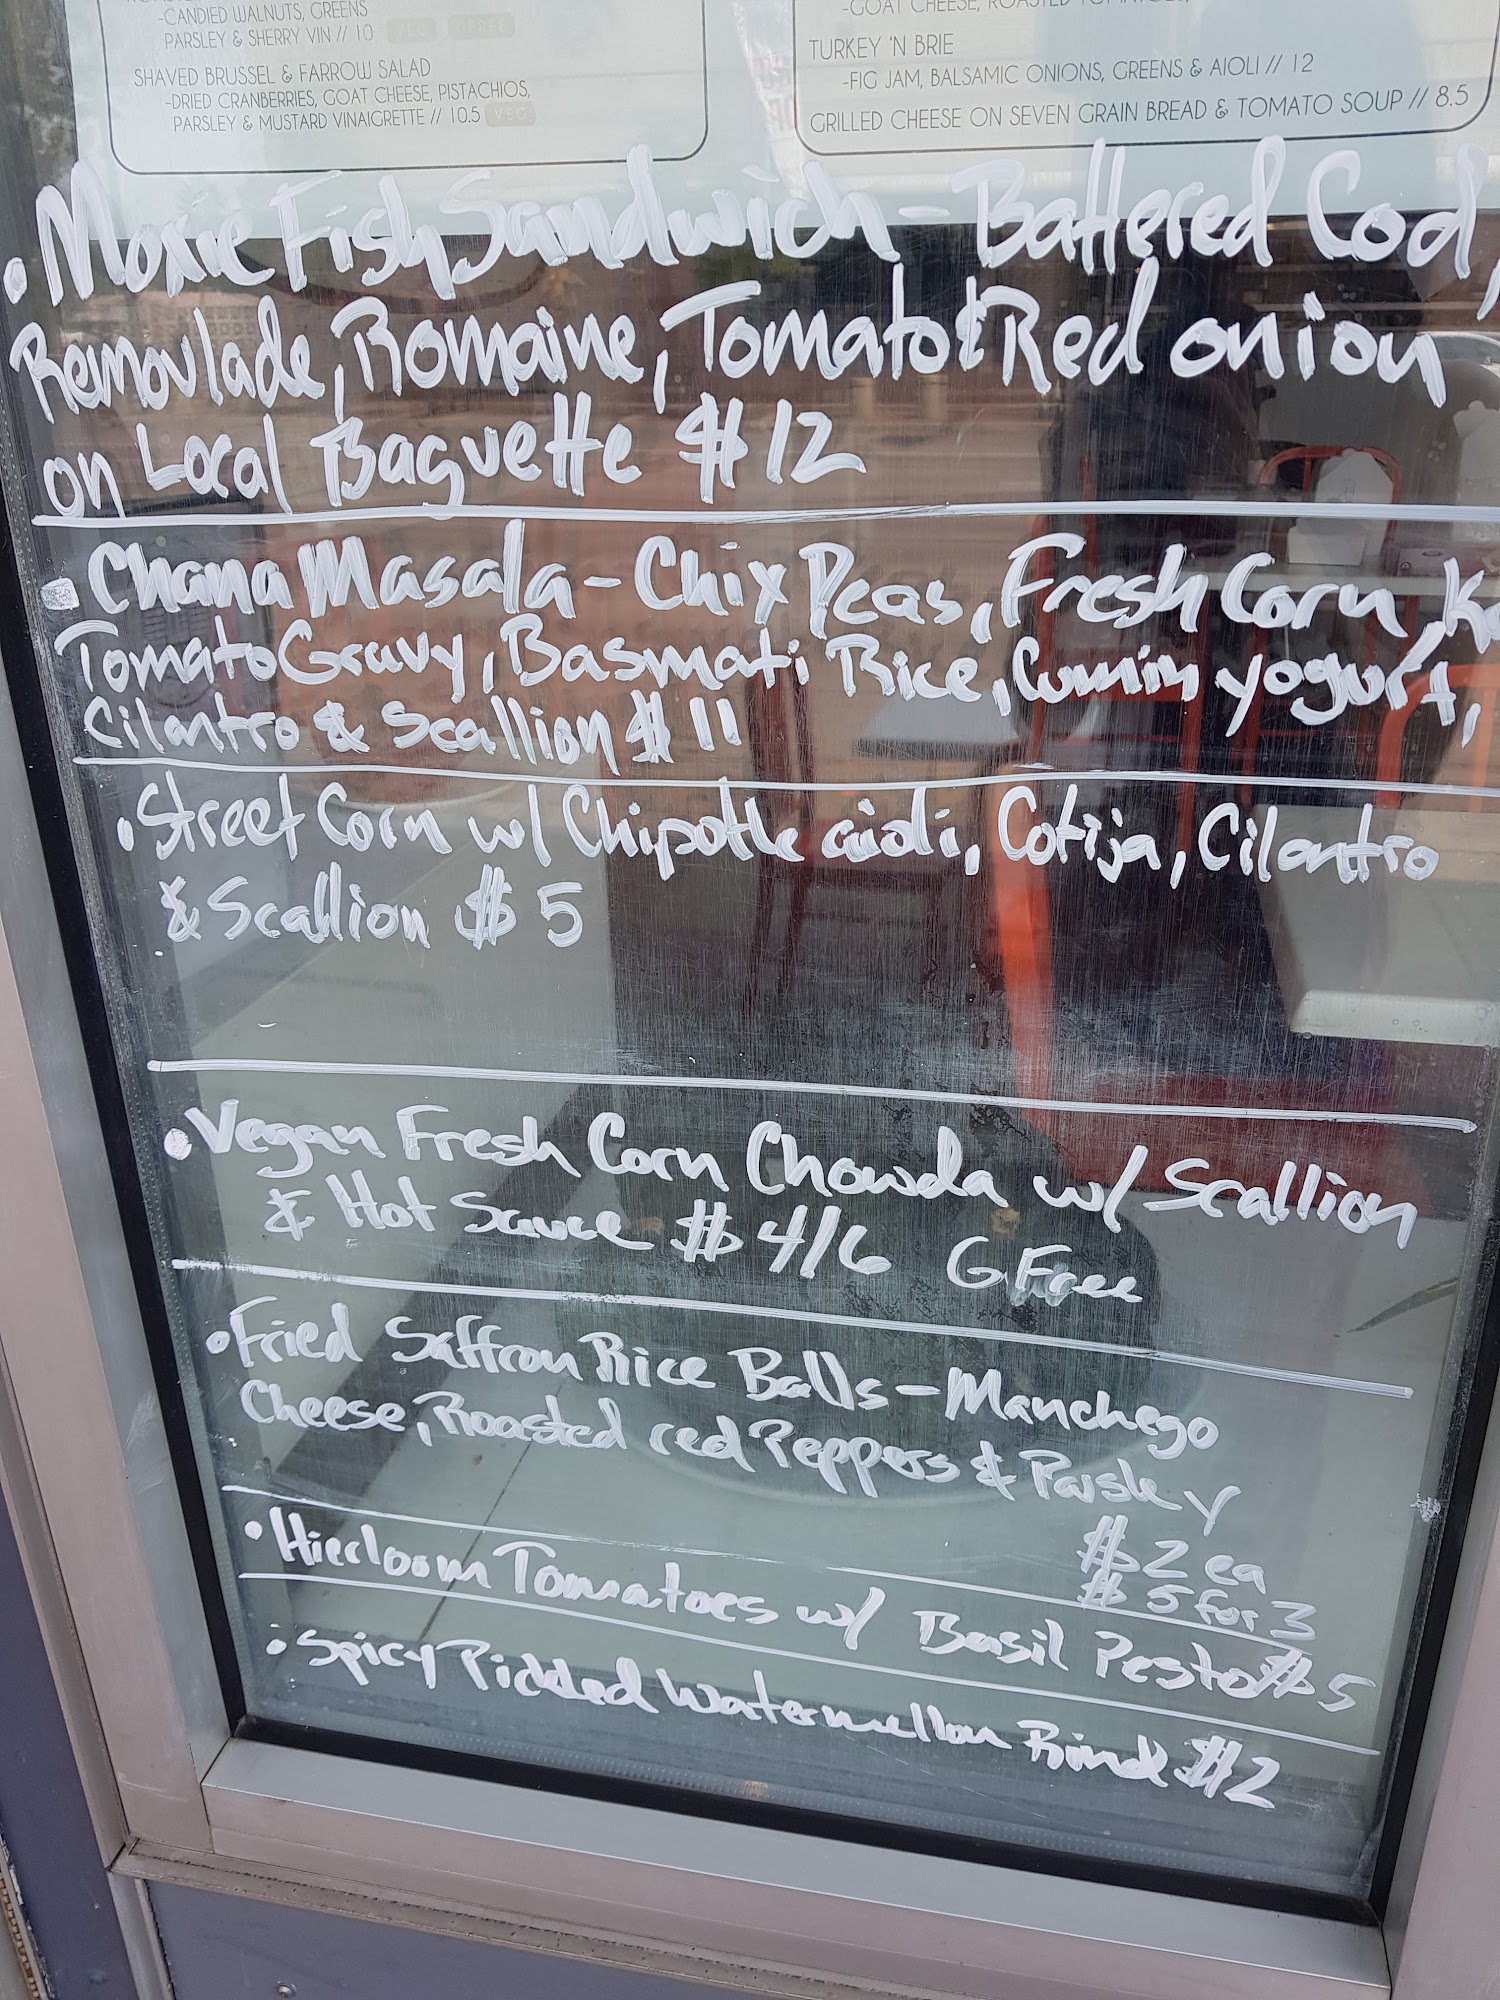 -CANDIED WALNUTS, GREENS
PARSLEY & SHERRY VIN // 10 VEG GFREE
SHAVED BRUSSEL & FARROW SALAD
-DRIED CRANBERRIES, GOAT CHEESE, PISTACHIOS,
PARSLEY & MUSTARD VINAIGRETTE // 10.5 VEG
-GOAT CHEESE, ROASTED TOMATOES,
TURKEY 'N BRIE
-FIG JAM, BALSAMIC ONIONS, GREENS & AIOLI // 12
GRILLED CHEESE ON SEVEN GRAIN BREAD & TOMATO SOUP // 8.5
• Moxie Fish Sandwich - Battered Cod,
Remoulade, Romaine, Tomato & Red onion
on Local Baguette $12
• Chana Masala - Chix Peas, Fresh Corn,
Tomato Gravy, Basmati Rice, Cumin yogurt,
Cilantro & Scallion $11
• Street Corn w/ Chipotle aioli, Cotija, Cilantro
& Scallion $5
• Vegan Fresh Corn Chowda w/ Scallion
& Hot Sauce $4/6 G Free
• Fried Saffron Rice Balls - Manchego
Cheese, Roasted red Peppers & Parsley
$2 ea
$5 for 3
• Hierloom Tomatoes w/ Basil Pesto $5
• Spicy Pickled Watermellon Rind $2